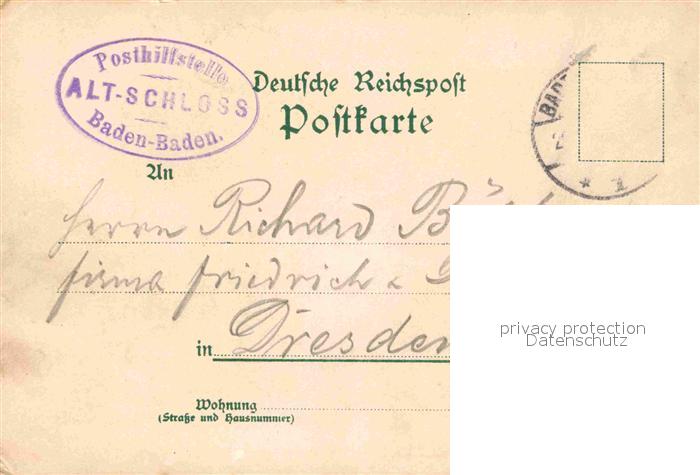 Posthilfstelle
ALT-SCHLOSS
Baden-Baden.
Deutsche Reichspost
Postkarte
BAD
* 1
An
Herrn Richard
firma Friedrich &
in Dresden
privacy protection
Datenschutz
Wohnung
(Straße und Hausnummer)